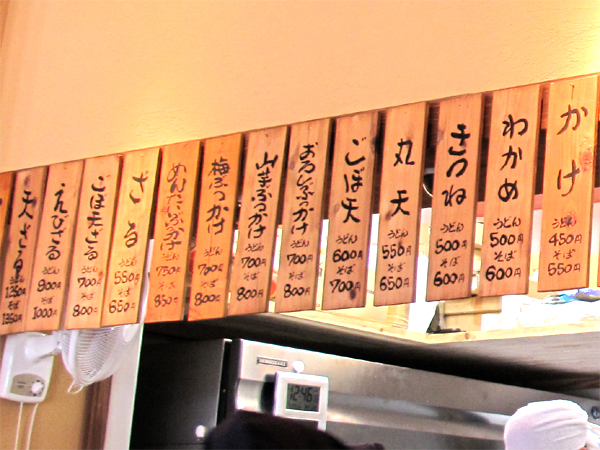 かけ
うどん
450円
そば
550円
わかめ
うどん
500円
そば
600円
きつね
うどん
500円
そば
600円
丸天
うどん
550円
そば
650円
ごぼ天
うどん
600円
そば
700円
おろしぶっかけ
うどん
700円
そば
800円
山芋ぶっかけ
うどん
700円
そば
800円
梅ぶっかけ
うどん
700円
そば
800円
めんたいぶっかけ
うどん
750円
そば
850円
ざる
うどん
550円
そば
650円
ごぼ天ざる
うどん
700円
そば
800円
えびざる
うどん
900円
そば
1000円
天ざる
うどん
1250円
そば
1350円
12:46